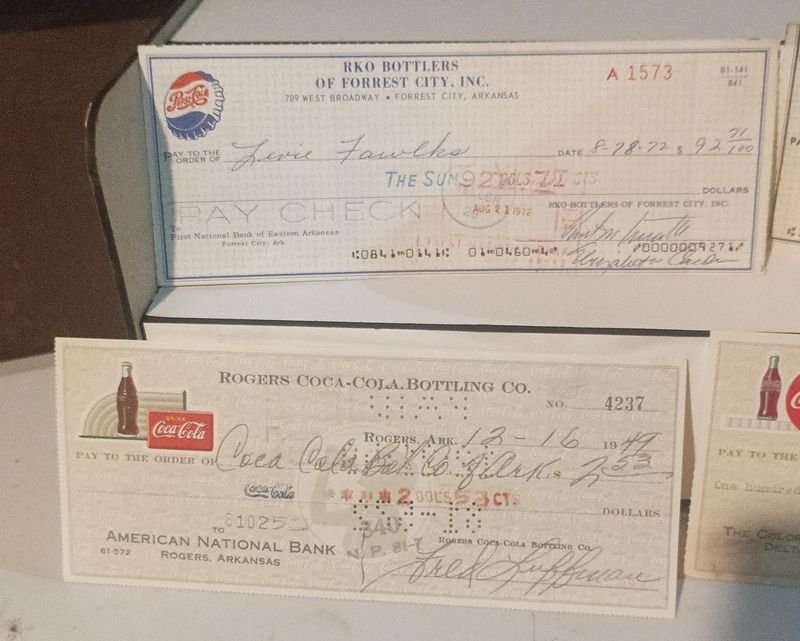 RKO BOTTLERS
OF FORREST CITY, INC.
709 WEST BROADWAY • FORREST CITY, ARKANSAS
A 1573
81-141
841
PEPSI-COLA
PAY TO THE
ORDER OF Levie Fawlks
DATE 8-28-72 $ 92 71/100
THE SUM 92 DOLS 71 CTS
DOLLARS
PAY CHECK
AUG 21 1972
RKO BOTTLERS OF FOREST CITY, INC.
To
First National Bank of Eastern Arkansas
Forrest City, Ark.
0841 0141 01 0460 4 0000009271
ROGERS COCA-COLA BOTTLING CO.
NO. 4237
DRINK
Coca-Cola
ROGERS, ARK. 12-16 1949
PAY TO THE ORDER OF Coca Cola Bot Co. of Ark. $ 2.53
Coca-Cola
2 DOLS 53 CTS
DOLLARS
TO
AMERICAN NATIONAL BANK
81-572
ROGERS, ARKANSAS
340
N. P. 81-7
ROGERS COCA-COLA BOTTLING CO.
Fred Huffman
PAY TO THE
One hundred